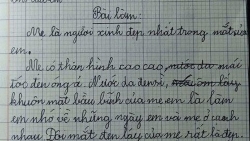 Bài làm:
Mẹ là người xinh đẹp nhất trong mắt của
em.
Mẹ có thân hình cao cao, mái
tóc đen óng ả. Nước da đen vì,
khuôn mặt bầu bĩnh của mẹ em là làm
em nhớ về những ngày em và mẹ ở cạnh
nhau. Đôi mắt đen láy của mẹ rất là đẹp.